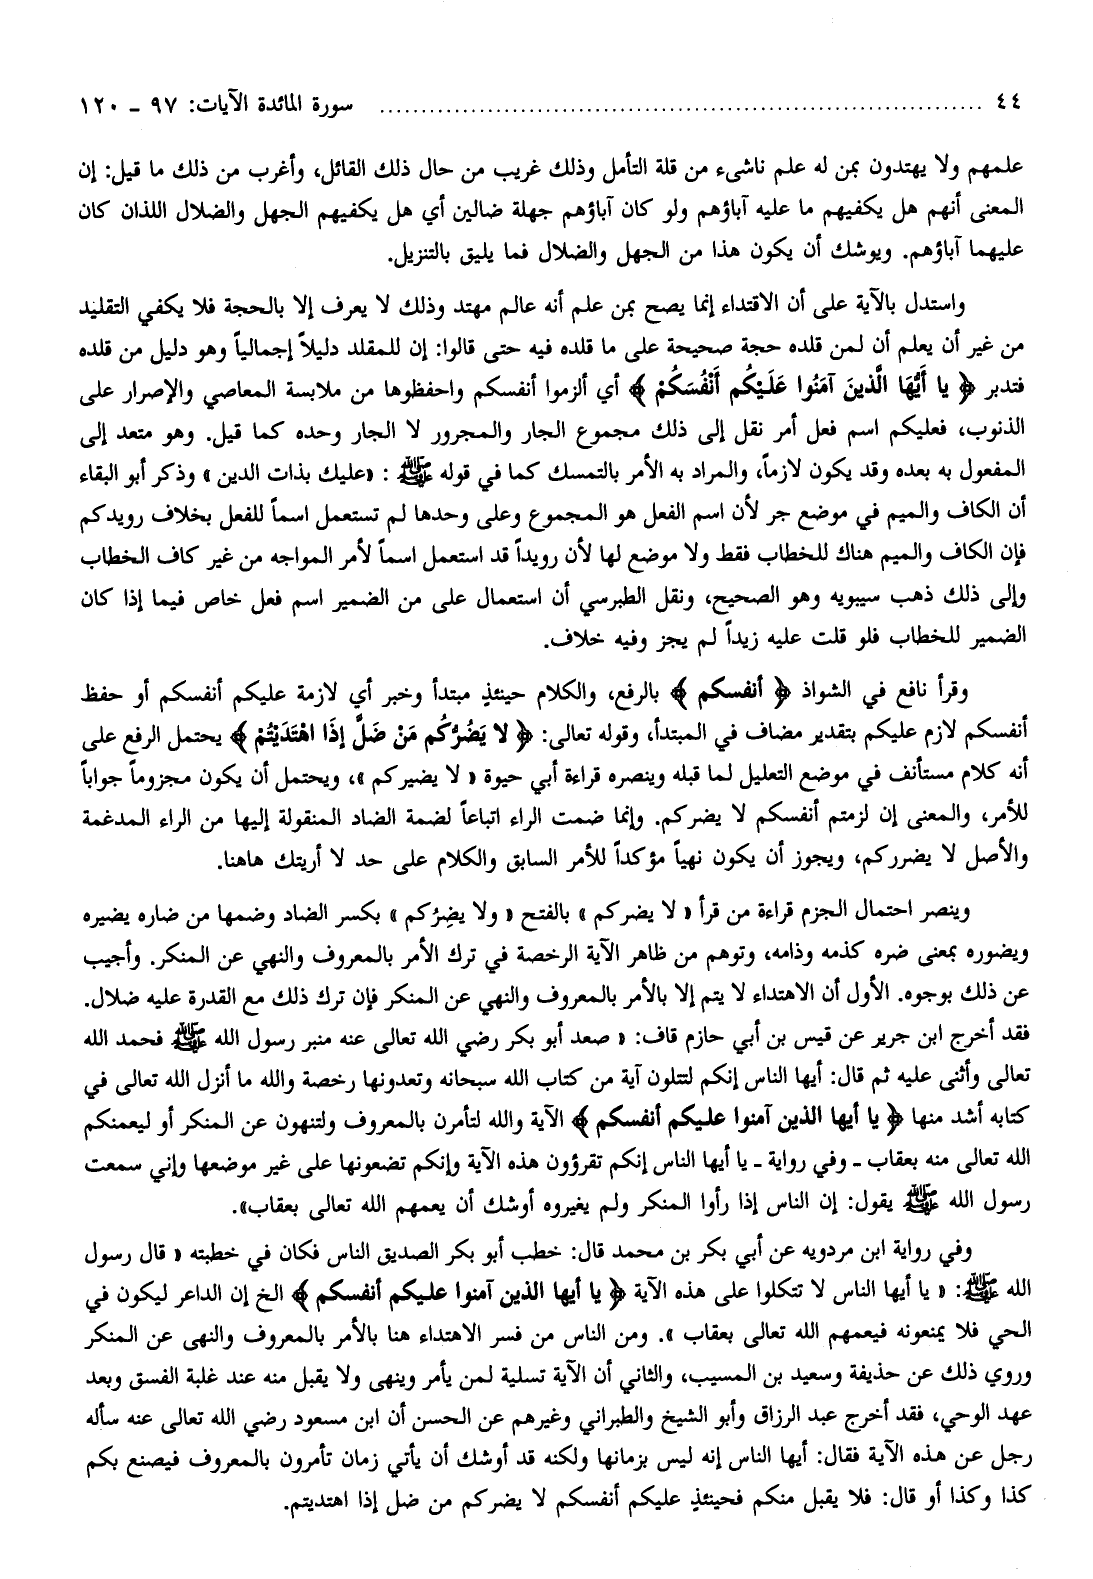 ٤٤ ........................................................ سورة المائدة الآيات: ٩٧ - ١٢٠
علمهم ولا يهتدون بمن له علم ناشىء من قلة التأمل وذلك غريب من حال ذلك القائل، وأغرب من ذلك ما قيل: إن
المعنى أنهم هل يكفيهم ما عليه آباؤهم ولو كان آباؤهم جهلة ضالين أي هل يكفيهم الجهل والضلال اللذان كان
عليهما آباؤهم. ويوشك أن يكون هذا من الجهل والضلال فما يليق بالتنزيل.
واستدل بالآية على أن الاقتداء إنما يصح بمن علم أنه عالم مهتد وذلك لا يعرف إلا بالحجة فلا يكفي التقليد
من غير أن يعلم أن لمن قلده حجة صحيحة على ما قلده فيه حتى قالوا: إن للمقلد دليلاً إجمالياً وهو دليل من قلده
فتدبر ﴿ يا أَيُّهَا الَّذينَ آمَنُوا عَلَيْكُم أَنْفُسَكُمْ ﴾ أي ألزموا أنفسكم واحفظوها من ملابسة المعاصي والإصرار على
الذنوب، فعليكم اسم فعل أمر نقل إلى ذلك مجموع الجار والمجرور لا الجار وحده كما قيل. وهو متعد إلى
المفعول به بعده وقد يكون لازماً، والمراد به الأمر بالتمسك كما في قوله ﷺ : «عليك بذات الدين » وذكر أبو البقاء
أن الكاف والميم في موضع جر لأن اسم الفعل هو المجموع وعلى وحدها لم تستعمل اسماً للفعل بخلاف رويدكم
فإن الكاف والميم هناك للخطاب فقط ولا موضع لها لأن رويداً قد استعمل اسماً لأمر المواجه من غير كاف الخطاب
وإلى ذلك ذهب سيبويه وهو الصحيح، ونقل الطبرسي أن استعمال على من الضمير اسم فعل خاص فيما إذا كان
الضمير للخطاب فلو قلت عليه زيداً لم يجز وفيه خلاف.
وقرأ نافع في الشواذ ﴿ أنفسكم ﴾ بالرفع، والكلام حينئذٍ مبتدأ وخبر أي لازمة عليكم أنفسكم أو حفظ
أنفسكم لازم عليكم بتقدير مضاف في المبتدأ، وقوله تعالى: ﴿ لا يَضُرُّكُم مَنْ ضَلَّ إِذَا اهْتَدَيْتُمْ ﴾ يحتمل الرفع على
أنه كلام مستأنف في موضع التعليل لما قبله وينصره قراءة أبي حيوة « لا يضيركم »، ويحتمل أن يكون مجزوماً جواباً
للأمر، والمعنى إن لزمتم أنفسكم لا يضركم. وإنما ضمت الراء اتباعاً لضمة الضاد المنقولة إليها من الراء المدغمة
والأصل لا يضرركم، ويجوز أن يكون نهياً مؤكداً للأمر السابق والكلام على حد لا أريتك هاهنا.
وينصر احتمال الجزم قراءة من قرأ « لا يضركم » بالفتح « ولا يضِرُكم » بكسر الضاد وضمها من ضاره يضيره
ويضوره بمعنى ضره كذمه وذامه، وتوهم من ظاهر الآية الرخصة في ترك الأمر بالمعروف والنهي عن المنكر. وأجيب
عن ذلك بوجوه. الأول أن الاهتداء لا يتم إلا بالأمر بالمعروف والنهي عن المنكر فإن ترك ذلك مع القدرة عليه ضلال.
فقد أخرج ابن جرير عن قيس بن أبي حازم قاف: « صعد أبو بكر رضي الله تعالى عنه منبر رسول الله ﷺ فحمد الله
تعالى وأثنى عليه ثم قال: أيها الناس إنكم لتتلون آية من كتاب الله سبحانه وتعدونها رخصة والله ما أنزل الله تعالى في
كتابه أشد منها ﴿ يا أيها الذين آمنوا عليكم أنفسكم ﴾ الآية والله لتأمرن بالمعروف ولتنهون عن المنكر أو ليعمنكم
الله تعالى منه بعقاب ـ وفي رواية ـ يا أيها الناس إنكم تقرؤون هذه الآية وإنكم تضعونها على غير موضعها وإني سمعت
رسول الله ﷺ يقول: إن الناس إذا رأوا المنكر ولم يغيروه أوشك أن يعمهم الله تعالى بعقاب».
وفي رواية ابن مردويه عن أبي بكر بن محمد قال: خطب أبو بكر الصديق الناس فكان في خطبته « قال رسول
الله ﷺ: « يا أيها الناس لا تتكلوا على هذه الآية ﴿ يا أيها الذين آمنوا عليكم أنفسكم ﴾ الخ إن الداعر ليكون في
الحي فلا يمنعونه فيعمهم الله تعالى بعقاب ». ومن الناس من فسر الاهتداء هنا بالأمر بالمعروف والنهى عن المنكر
وروي ذلك عن حذيفة وسعيد بن المسيب، والثاني أن الآية تسلية لمن يأمر وينهى ولا يقبل منه عند غلبة الفسق وبعد
عهد الوحي، فقد أخرج عبد الرزاق وأبو الشيخ والطبراني وغيرهم عن الحسن أن ابن مسعود رضي الله تعالى عنه سأله
رجل عن هذه الآية فقال: أيها الناس إنه ليس بزمانها ولكنه قد أوشك أن يأتي زمان تأمرون بالمعروف فيصنع بكم
كذا وكذا أو قال: فلا يقبل منكم فحينئذٍ عليكم أنفسكم لا يضركم من ضل إذا اهتديتم.